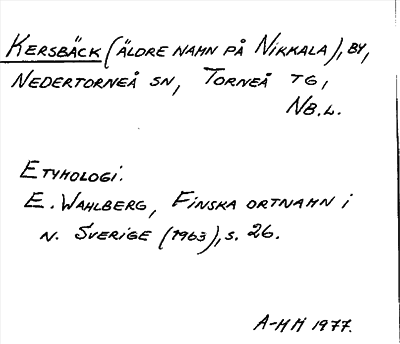 KERSBÄCK (ÄLDRE NAMN PÅ NIKKALA), BY,
NEDERTORNEÅ SN, TORNEÅ TG,
NB.L.
ETYMOLOGI:
E. WAHLBERG, FINSKA ORTNAMN I
N. SVERIGE (1963), S. 26.
A-HH 1977.